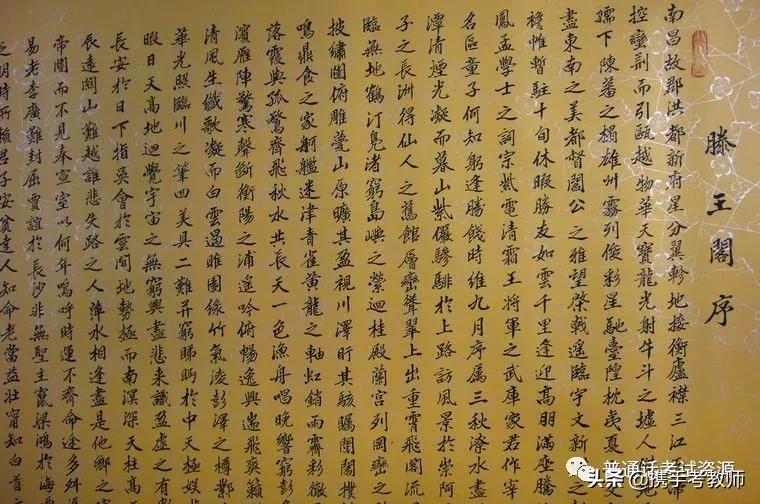 滕王閣序
南昌故郡洪都新府星分翼軫地接衡廬襟三江
控蠻荆而引甌越物華天寶龍光射牛斗之墟人
孺下陳蕃之榻雄州霧列俊彩星馳臺隍枕夷夏
盡東南之美都督閻公之雅望棨戟遙臨宇文新
襜帷暫駐十旬休暇勝友如雲千里逢迎高朋滿座騰
鳳孟學士之詞宗紫電清霜王將軍之武庫家君作宰
名區童子何知躬逢勝餞時維九月序屬三秋潦水盡
潭清煙光凝而暮山紫儼驂騑於上路訪風景於崇阿
子之長洲得仙人之舊館層巒聳翠上出重霄飛閣流
臨無地鶴汀鳧渚窮島嶼之縈迴桂殿蘭宮列岡巒之
披繡闥俯雕甍山原曠其盈視川澤盱其駭矚閭閻撲
鳴鼎食之家舸艦迷津青雀黃龍之軸虹銷雨霽彩徹
落霞與孤鶩齊飛秋水共長天一色漁舟唱晚響窮彭
濱雁陣驚寒聲斷衡陽之浦遙吟俯暢逸興遄飛爽籟
清風生纖歌凝而白雲遏睢園綠竹氣凌彭澤之樽鄴
華光照臨川之筆四美具二難并窮睇眄於中天極娛
暇日天高地迥覺宇宙之無窮興盡悲来識盈虛之有
長安於日下指吳會於雲間地勢極而南溟深天柱高
辰遠關山難越誰悲失路之人萍水相逢盡是他鄉之
帝閽而不見奉宣室以何年嗚呼時運不齊命途多舛
易老李廣難封屈賈誼於長沙非無聖主竄梁鴻於海
之明時所賴君子安貧達人知命老當益壯甯知白首
普通话考试资源
头条 @携手考教师